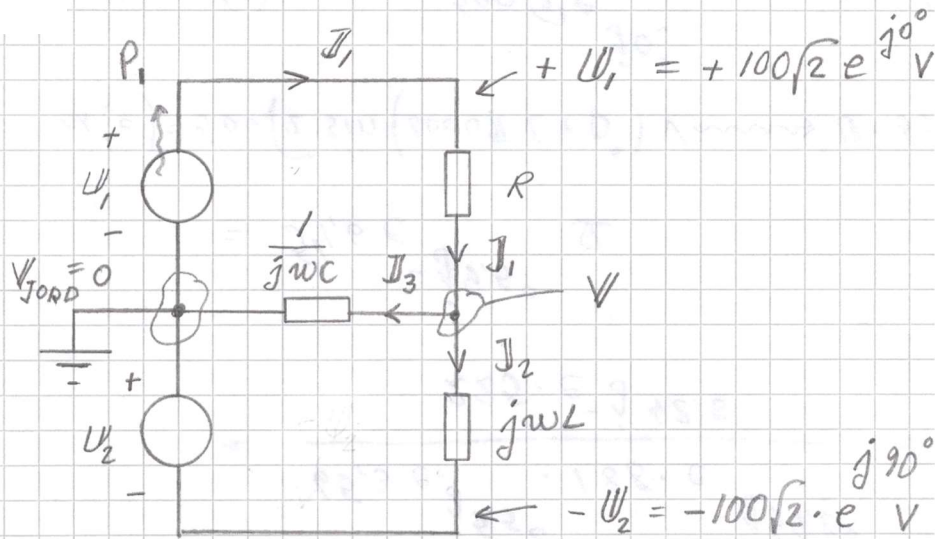 P₁
I₁
+ U₁ = + 100√2 e^{j0°} V
+
U₁
−
R
1/jωC
V_JORD = 0
I₃
I₁
V
I₂
+
U₂
−
jωL
− U₂ = −100√2 · e^{j90°} V